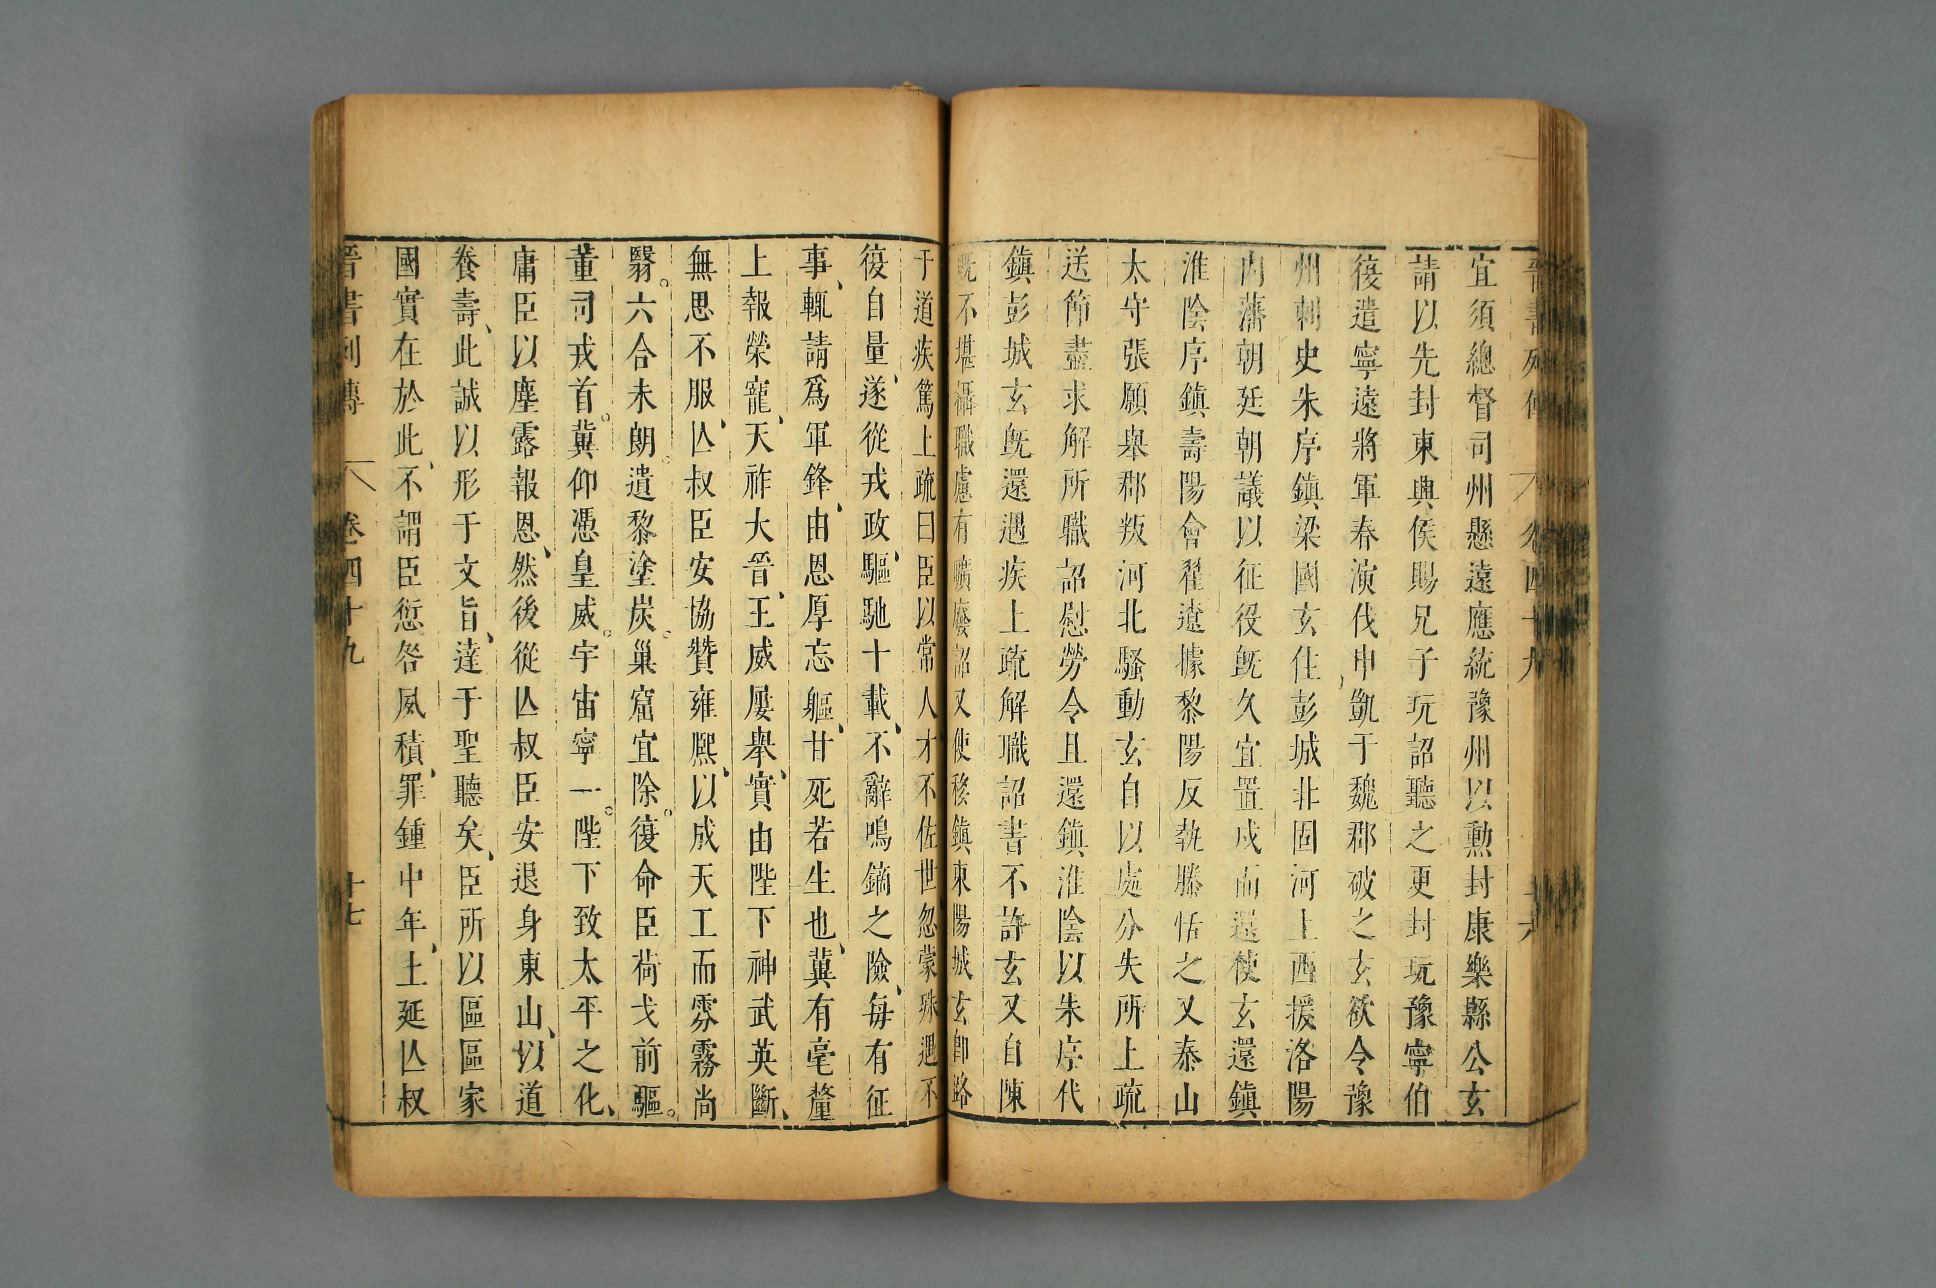 晉書列傳 卷四十九 十六
宜須總督司州懸遠應統豫州以勳封康樂縣公玄
請以先封東興侯賜兄子玩詔聽之更封玩豫寧伯
復遣寧遠將軍舂演伐申凱于魏郡破之玄欲令豫
州刺史朱序鎮梁國玄住彭城北固河上西援洛陽
內藩朝廷朝議以征役旣久宜置戍而還使玄還鎮
淮陰序鎮壽陽會翟遼據黎陽反執滕恬之又泰山
太守張願舉郡叛河北騷動玄自以處分失所上疏
送節盡求解所職詔慰勞令且還鎮淮陰以朱序代
鎮彭城玄旣還遇疾上疏解職詔書不許玄又自陳
旣不堪攝職慮有曠廢詔又使移鎮東陽城玄卽路
于道疾篤上疏曰臣以常人才不佐世忽蒙殊遇不
復自量、遂從戎政、驅馳十載、不辭鳴鏑之險、每有征
事、輒請爲軍鋒、由恩厚忘軀、甘死若生也、冀有毫釐
上報榮寵、天祚大晉、王威屢舉、實由陛下神武英斷、
無思不服、亾叔臣安協贊雍熙、以成天工而雰霧尚
翳。六合未朗。遺黎塗炭。巢窟宜除。復命臣荷戈前驅。
董司戎首。冀仰憑皇威。宇宙寧一。陛下致太平之化、
庸臣以塵露報恩、然後從亾叔臣安退身東山、以道
養壽、此誠以形于文旨、達于聖聽矣、臣所以區區家
國實在於此、不謂臣愆咎夙積、罪鍾中年、上延亾叔
晉書列傳 卷四十九 十七